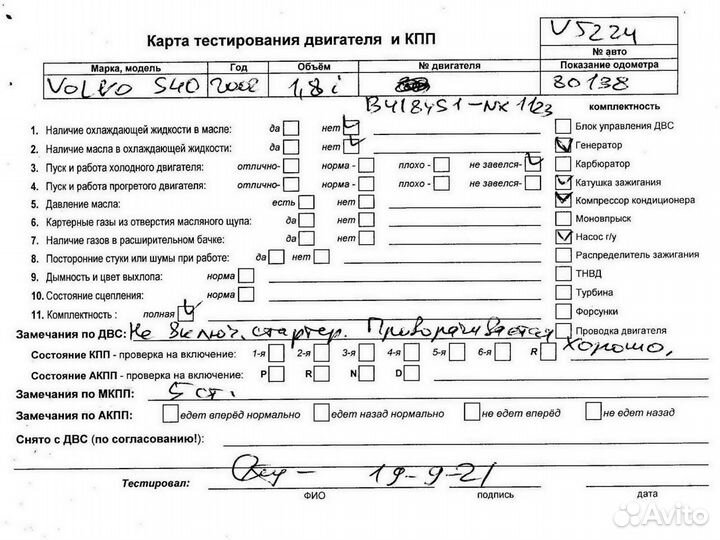 Карта тестирования двигателя и КПП
V5224
№ авто
Марка, модель Год Объём № двигателя Показание одометра
VOLVO S40 1,8i 80138
B4184S1-NX 1123
комплектность
1. Наличие охлаждающей жидкости в масле: да нет
Блок управления ДВС
2. Наличие масла в охлаждающей жидкости: да нет
Генератор
3. Пуск и работа холодного двигателя: отлично- норма - плохо - не завелся-
Карбюратор
4. Пуск и работа прогретого двигателя: отлично- норма - плохо - не завелся-
Катушка зажигания
5. Давление масла: есть нет
Компрессор кондиционера
6. Картерные газы из отверстия масляного щупа: да нет
Моновпрыск
7. Наличие газов в расширительном бачке: да нет
Насос г/у
8. Посторонние стуки или шумы при работе: да нет
Распределитель зажигания
9. Дымность и цвет выхлопа: норма
ТНВД
10. Состояние сцепления: норма
Турбина
11. Комплектность : полная
Форсунки
Замечания по ДВС: Не включ. стартер. Проворачивается хорошо,
Проводка двигателя
Состояние КПП - проверка на включение: 1-я 2-я 3-я 4-я 5-я 6-я R
Состояние АКПП - проверка на включение: P R N D
Замечания по МКПП: 5 ст.
Замечания по АКПП: едет вперёд нормально едет назад нормально не едет вперёд не едет назад
Снято с ДВС (по согласованию!):
19-9-21
Тестировал:
ФИО подпись дата
Avito